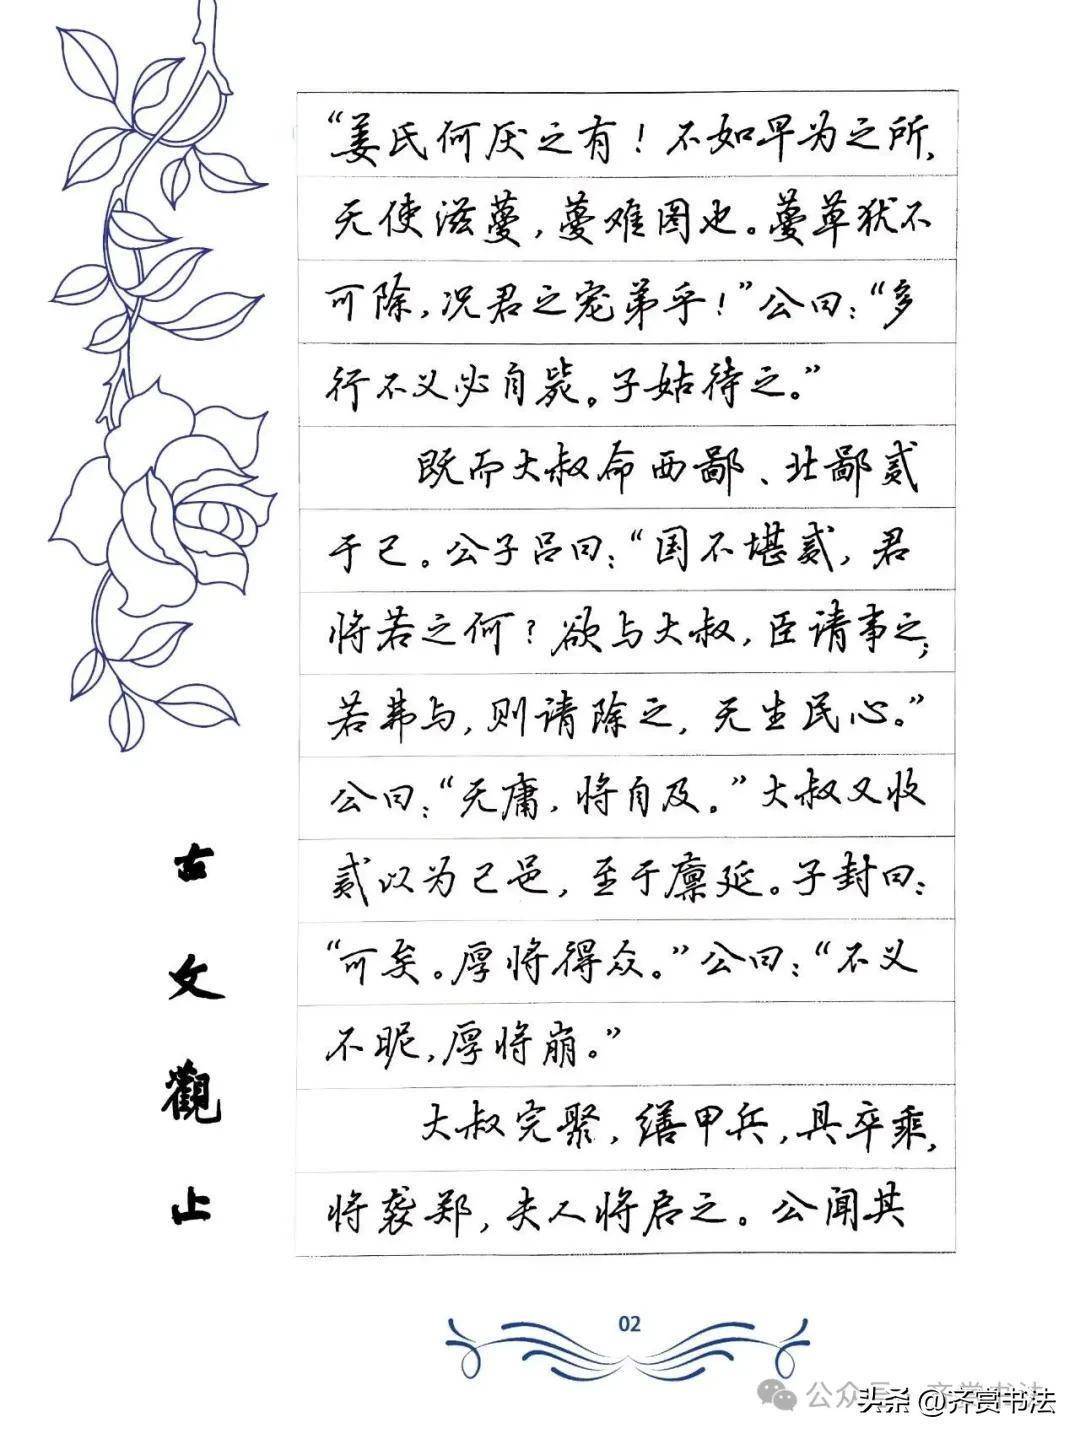 “姜氏何厌之有！不如早为之所，
无使滋蔓，蔓难图也。蔓草犹不
可除，况君之宠弟乎！”公曰：“多
行不义必自毙。子姑待之。”
既而大叔命西鄙、北鄙贰
于己。公子吕曰：“国不堪贰，君
将若之何？欲与大叔，臣请事之；
若弗与，则请除之，无生民心。”
公曰：“无庸，将自及。”大叔又收
贰以为己邑，至于廪延。子封曰：
“可矣。厚将得众。”公曰：“不义
不昵，厚将崩。”
大叔完聚，缮甲兵，具卒乘，
将袭郑，夫人将启之。公闻其
古文觀止
02
公众号·齐赏书法
头条 @齐赏书法